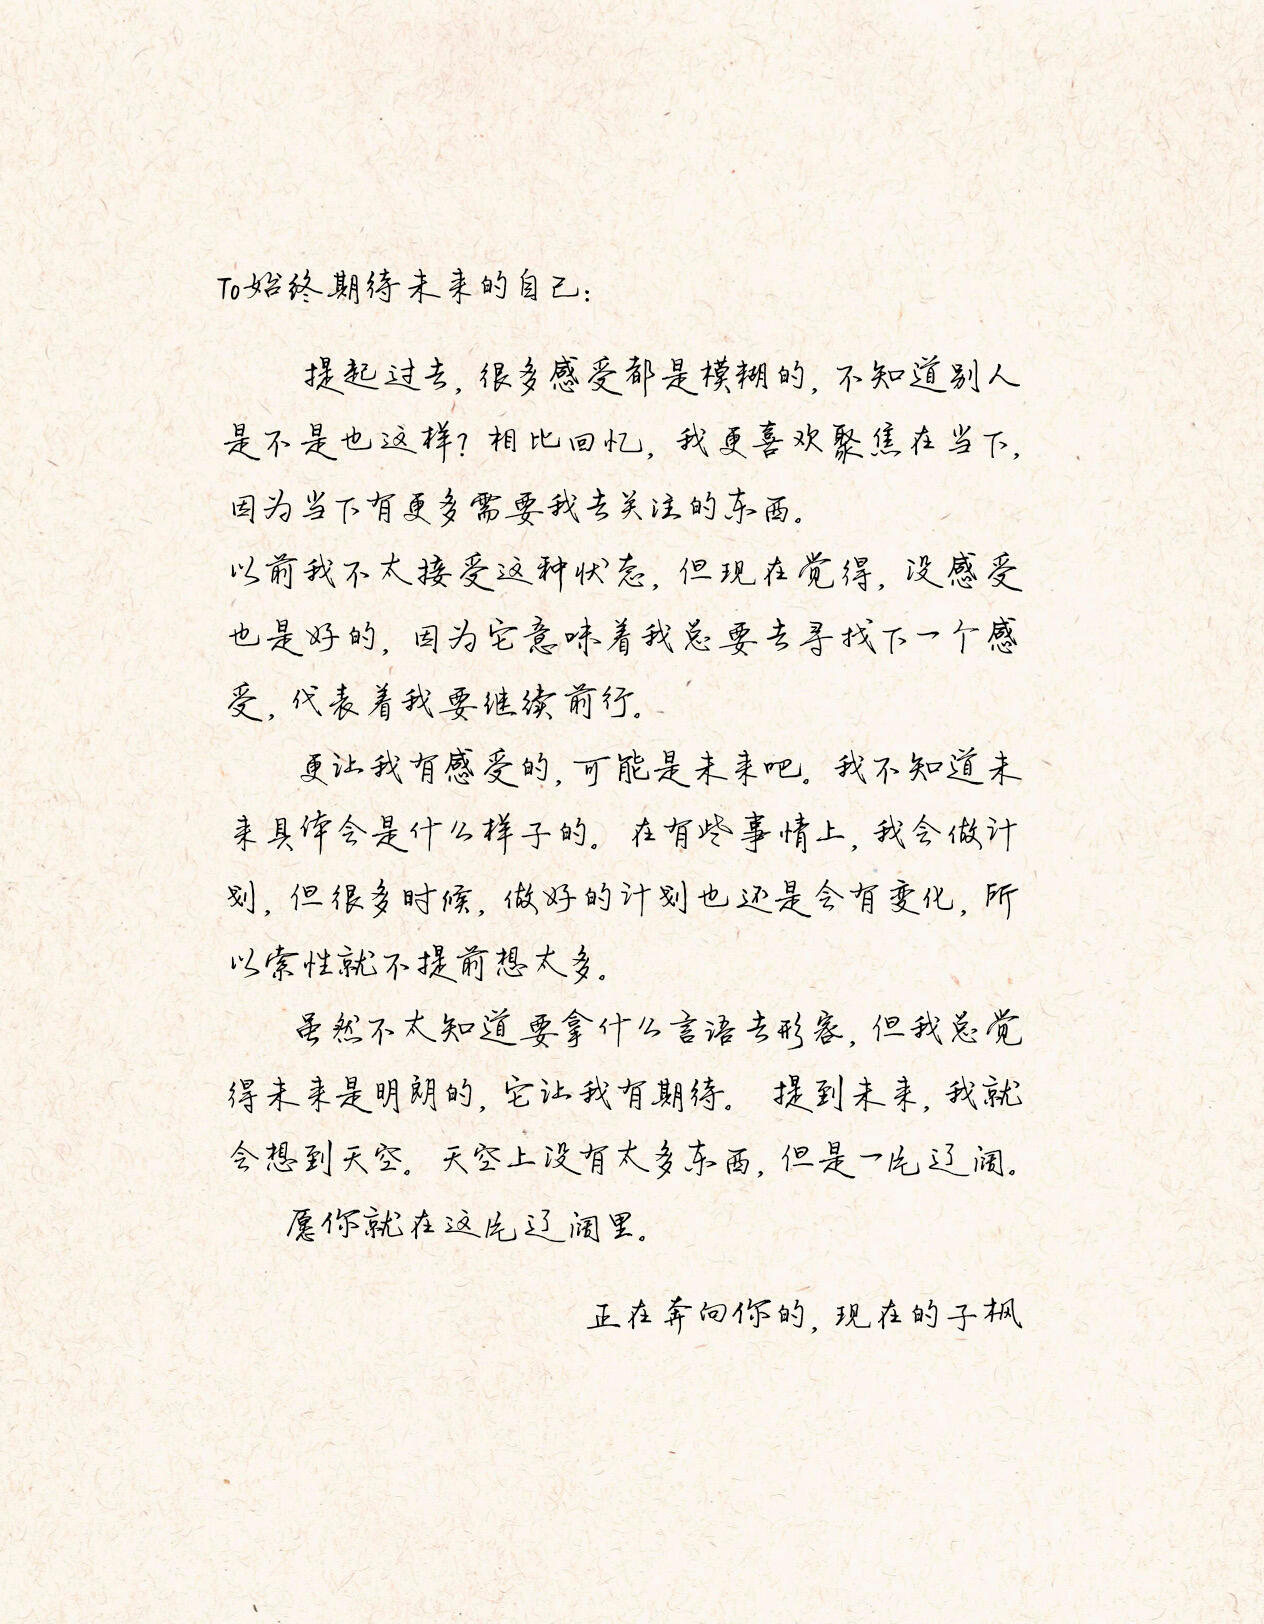 To始终期待未来的自己：
提起过去，很多感受都是模糊的，不知道别人
是不是也这样？相比回忆，我更喜欢聚焦在当下，
因为当下有更多需要我去关注的东西。
以前我不太接受这种状态，但现在觉得，没感受
也是好的，因为它意味着我总要去寻找下一个感
受，代表着我要继续前行。
更让我有感受的，可能是未来吧。我不知道未
来具体会是什么样子的。在有些事情上，我会做计
划，但很多时候，做好的计划也还是会有变化，所
以索性就不提前想太多。
虽然不太知道要拿什么言语去形容，但我总觉
得未来是明朗的，它让我有期待。提到未来，我就
会想到天空。天空上没有太多东西，但是一片辽阔。
愿你就在这片辽阔里。
正在奔向你的，现在的子枫